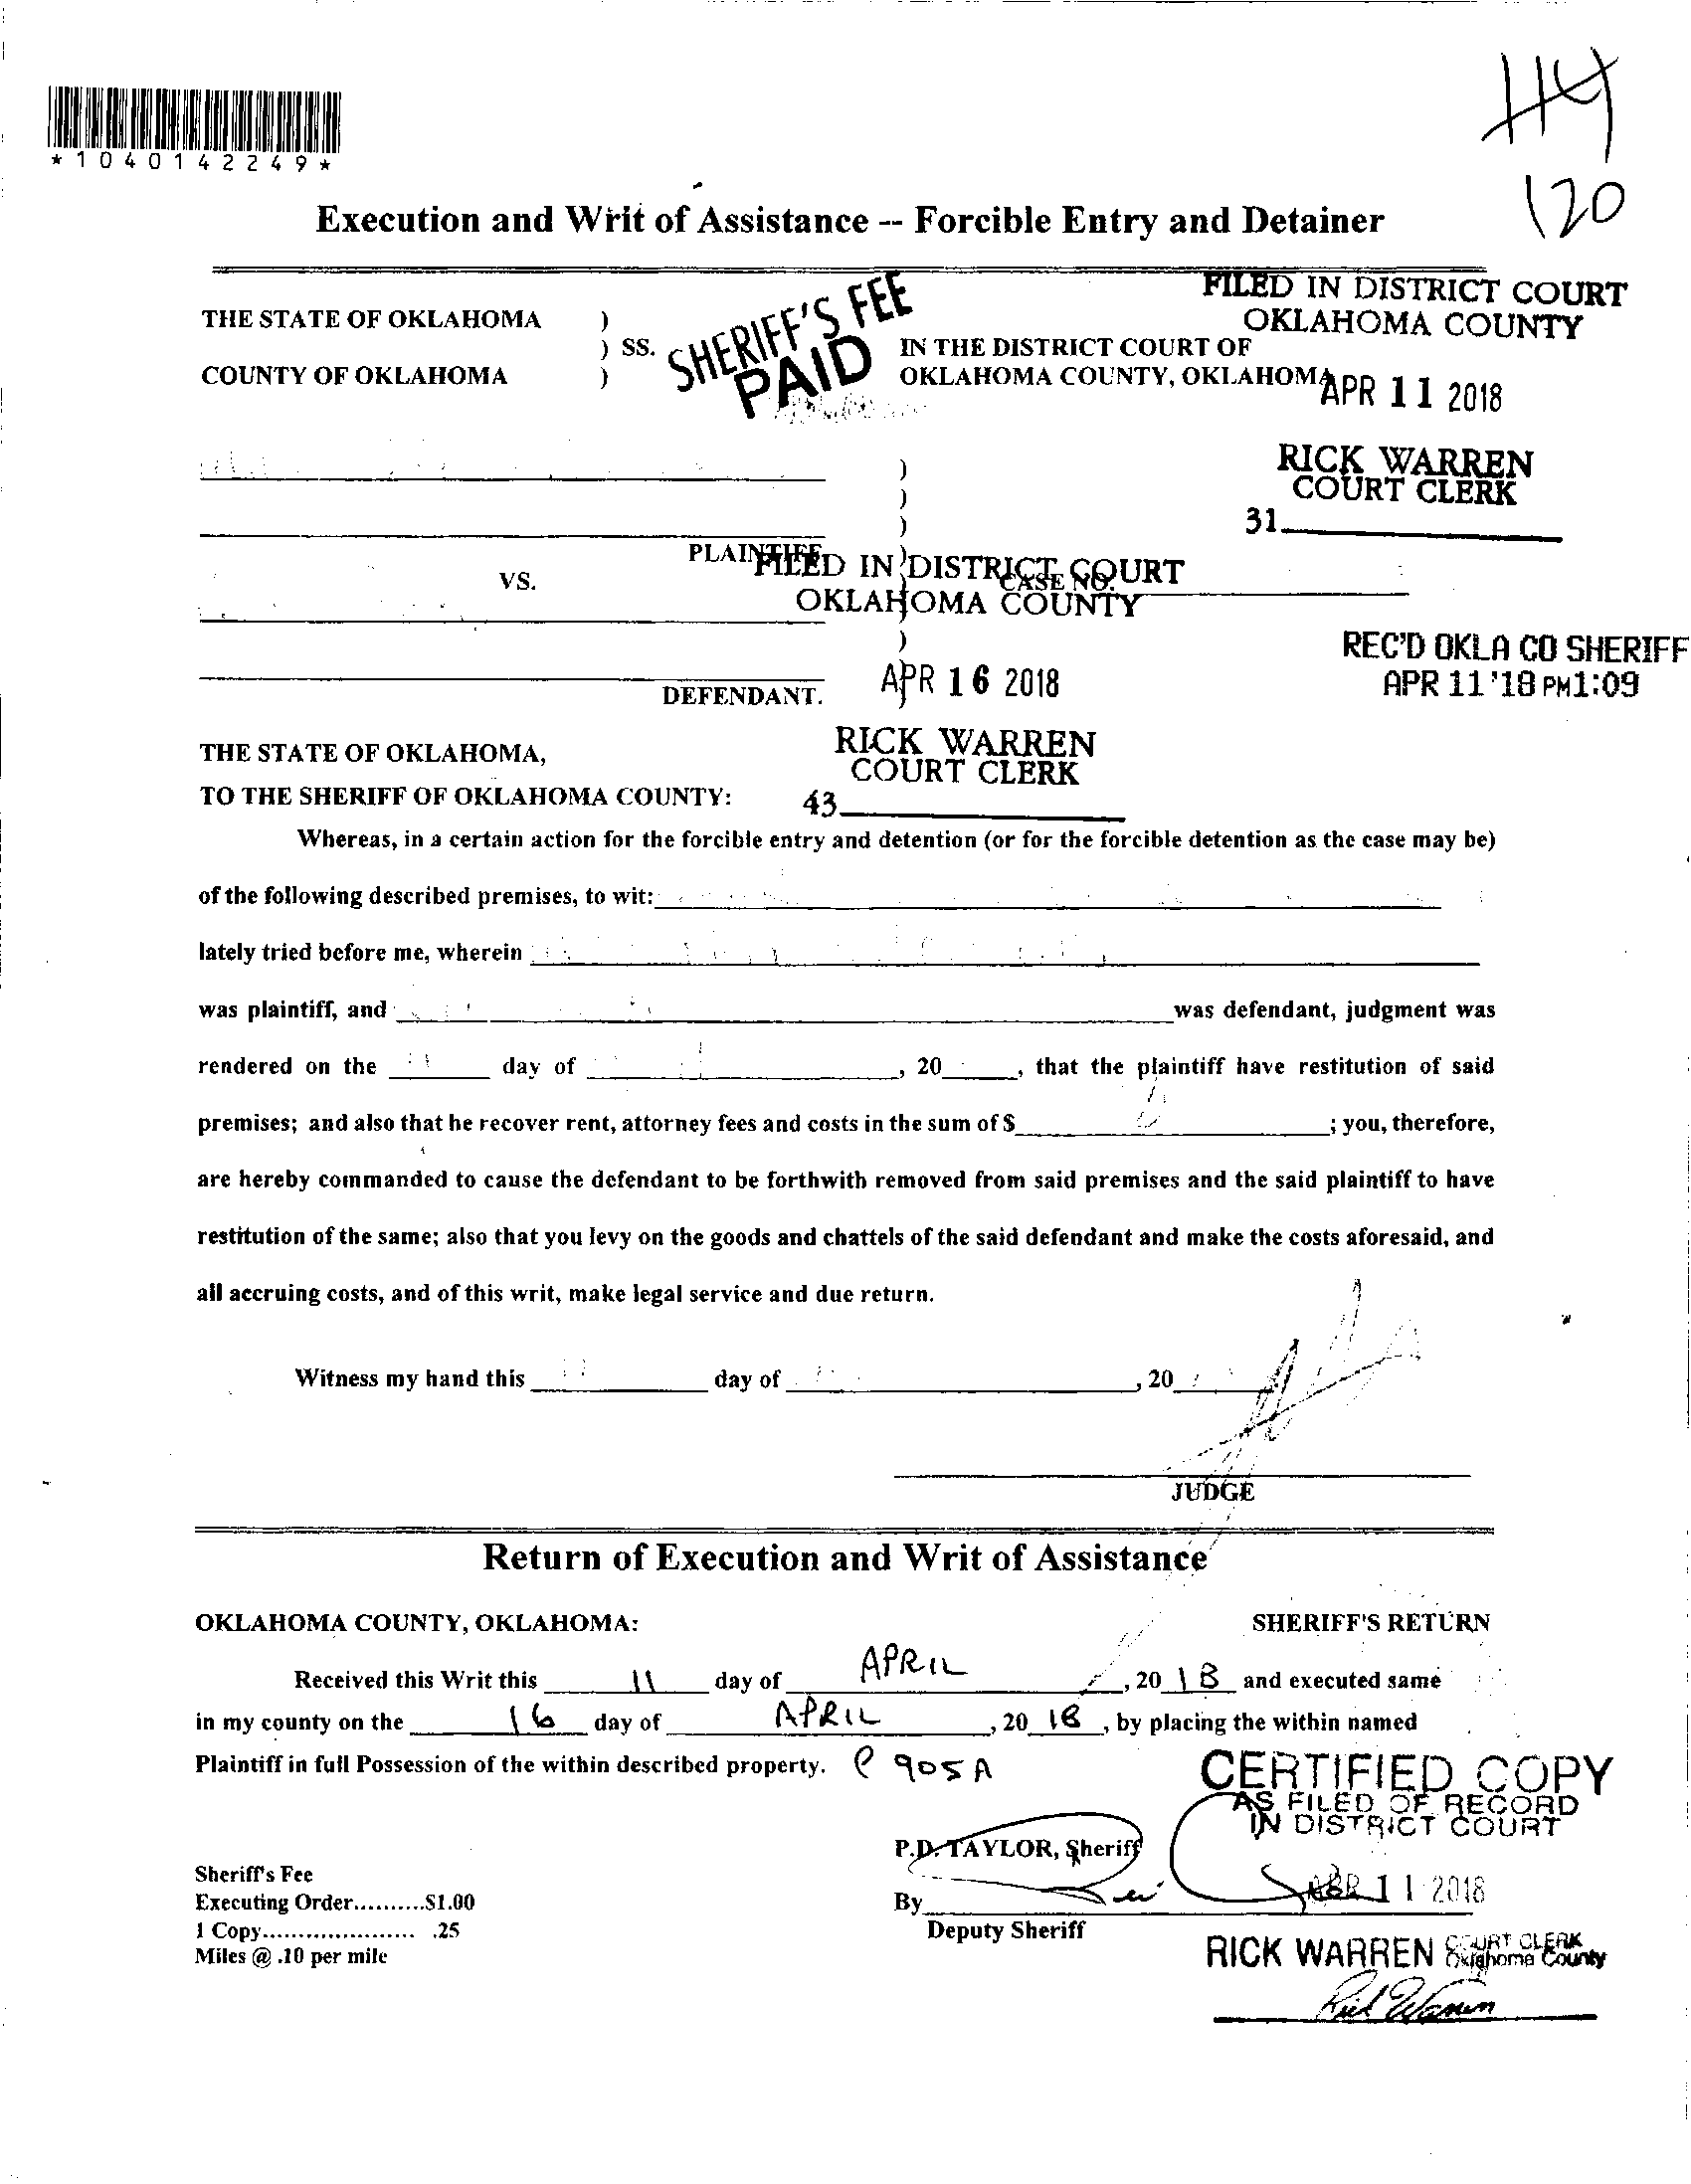 *1040142249*
H4
120
Execution and Writ of Assistance -- Forcible Entry and Detainer
FILED IN DISTRICT COURT
OKLAHOMA COUNTY
THE STATE OF OKLAHOMA )
) SS.
COUNTY OF OKLAHOMA )
SHERIFF'S FEE
PAID
IN THE DISTRICT COURT OF
OKLAHOMA COUNTY, OKLAHOMA
APR 11 2018
RICK WARREN
COURT CLERK
31
PLAINTIFF
VS.
CASE NO.
FILED IN DISTRICT COURT
OKLAHOMA COUNTY
APR 16 2018
RICK WARREN
COURT CLERK
43
REC'D OKLA CO SHERIFF
APR 11'18 PM1:09
DEFENDANT.
THE STATE OF OKLAHOMA,
TO THE SHERIFF OF OKLAHOMA COUNTY:
Whereas, in a certain action for the forcible entry and detention (or for the forcible detention as the case may be)
of the following described premises, to wit:
lately tried before me, wherein
was plaintiff, and was defendant, judgment was
rendered on the day of , 20 , that the plaintiff have restitution of said
premises; and also that he recover rent, attorney fees and costs in the sum of $ ; you, therefore,
are hereby commanded to cause the defendant to be forthwith removed from said premises and the said plaintiff to have
restitution of the same; also that you levy on the goods and chattels of the said defendant and make the costs aforesaid, and
all accruing costs, and of this writ, make legal service and due return.
Witness my hand this day of , 20
JUDGE
Return of Execution and Writ of Assistance
OKLAHOMA COUNTY, OKLAHOMA: SHERIFF'S RETURN
Received this Writ this 11 day of APRIL , 20 18 and executed same
in my county on the 16 day of APRIL , 20 18 , by placing the within named
Plaintiff in full Possession of the within described property. @ 905 A
CERTIFIED COPY
AS FILED OF RECORD
IN DISTRICT COURT
P.D. TAYLOR, Sheriff
Sheriff's Fee
Executing Order..........$1.00
1 Copy...................... .25
Miles @ .10 per mile
By
Deputy Sheriff
APR 11 2018
RICK WARREN COURT CLERK
Oklahoma County
Rick Warren